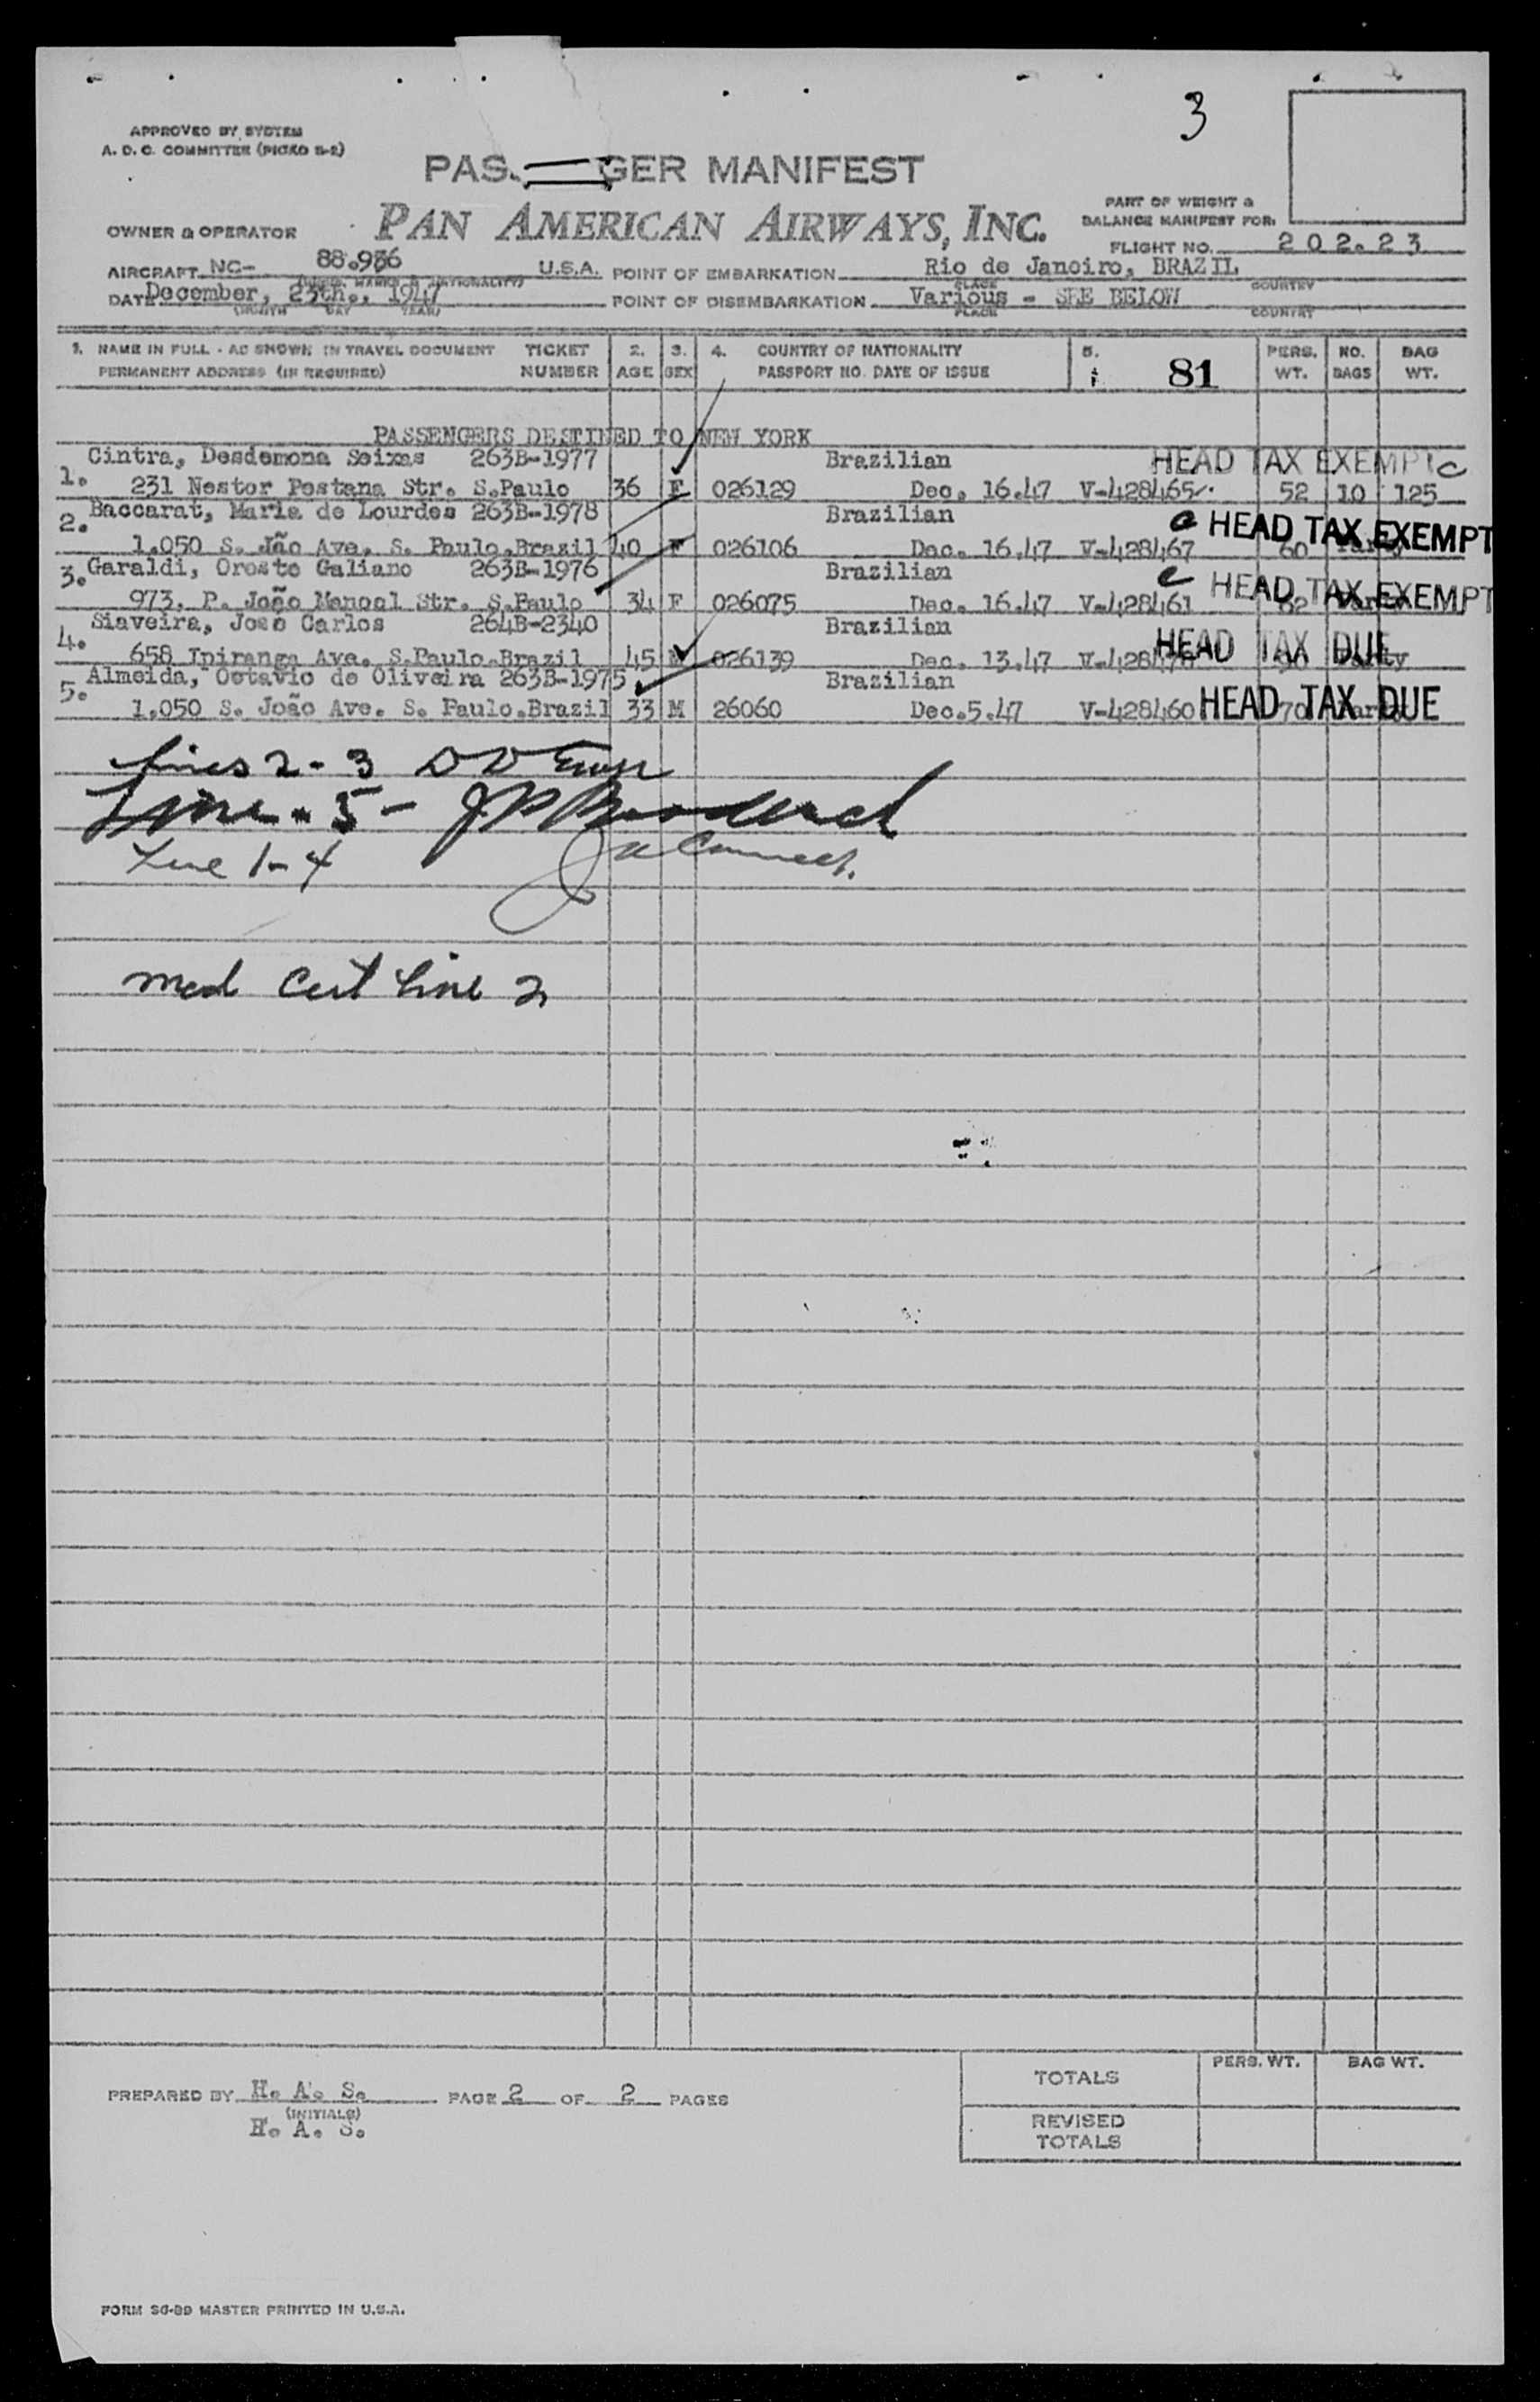 3
APPROVED BY SYSTEM
A. D. C. COMMITTEE (PICAO S-2)
PAS GER MANIFEST
PART OF WEIGHT &
BALANCE MANIFEST FOR:
OWNER & OPERATOR PAN AMERICAN AIRWAYS, INC.
FLIGHT NO. 202.23
AIRCRAFT NC- 88.936 U.S.A. POINT OF EMBARKATION Rio de Janeiro, BRAZIL
PLACE COUNTRY
DATE December, 23th., 1947 POINT OF DISEMBARKATION Various - SEE BELOW
(MONTH DAY YEAR) PLACE COUNTRY
1. NAME IN FULL - AS SHOWN IN TRAVEL DOCUMENT TICKET 2. 3. 4. COUNTRY OF NATIONALITY 5. PERS. NO. BAG
PERMANENT ADDRESS (IF REQUIRED) NUMBER AGE SEX PASSPORT NO. DATE OF ISSUE 81 WT. BAGS WT.
PASSENGERS DESTINED TO NEW YORK
Cintra, Desdemona Seixas 263B-1977 Brazilian HEAD TAX EXEMPT c
1. 231 Nestor Pestana Str. S.Paulo 36 F 026129 Dec. 16.47 V-428465 52 10 125
2. Baccarat, Maria de Lourdes 263B-1978 Brazilian HEAD TAX EXEMPT
1.050 S. Jão Ave. S. Paulo.Brazil 40 F 026106 Dec. 16.47 V-428467 60
3. Garaldi, Oroste Galiano 263B-1976 Brazilian HEAD TAX EXEMPT
973, P. João Manoel Str. S.Paulo 34 F 026075 Dec. 16.47 V-428461 62
4. Siaveira, Joao Carlos 264B-2340 Brazilian HEAD TAX DUE
658 Ipiranga Ave. S.Paulo.Brazil 45 M 026139 Dec. 13.47
5. Almeida, Octavio de Oliveira 263B-1975 Brazilian
1.050 S. João Ave. S. Paulo.Brazil 33 M 26060 Dec.5.47 V-428460 HEAD TAX DUE 70
Lines 2 - 3
Line - 5 -
Line 1 - 4
Med Cert Line 2
PREPARED BY H. A. S. PAGE 2 OF 2 PAGES
(INITIALS)
H. A. S.
PERS. WT. BAG WT.
TOTALS
REVISED
TOTALS
FORM SG-89 MASTER PRINTED IN U.S.A.